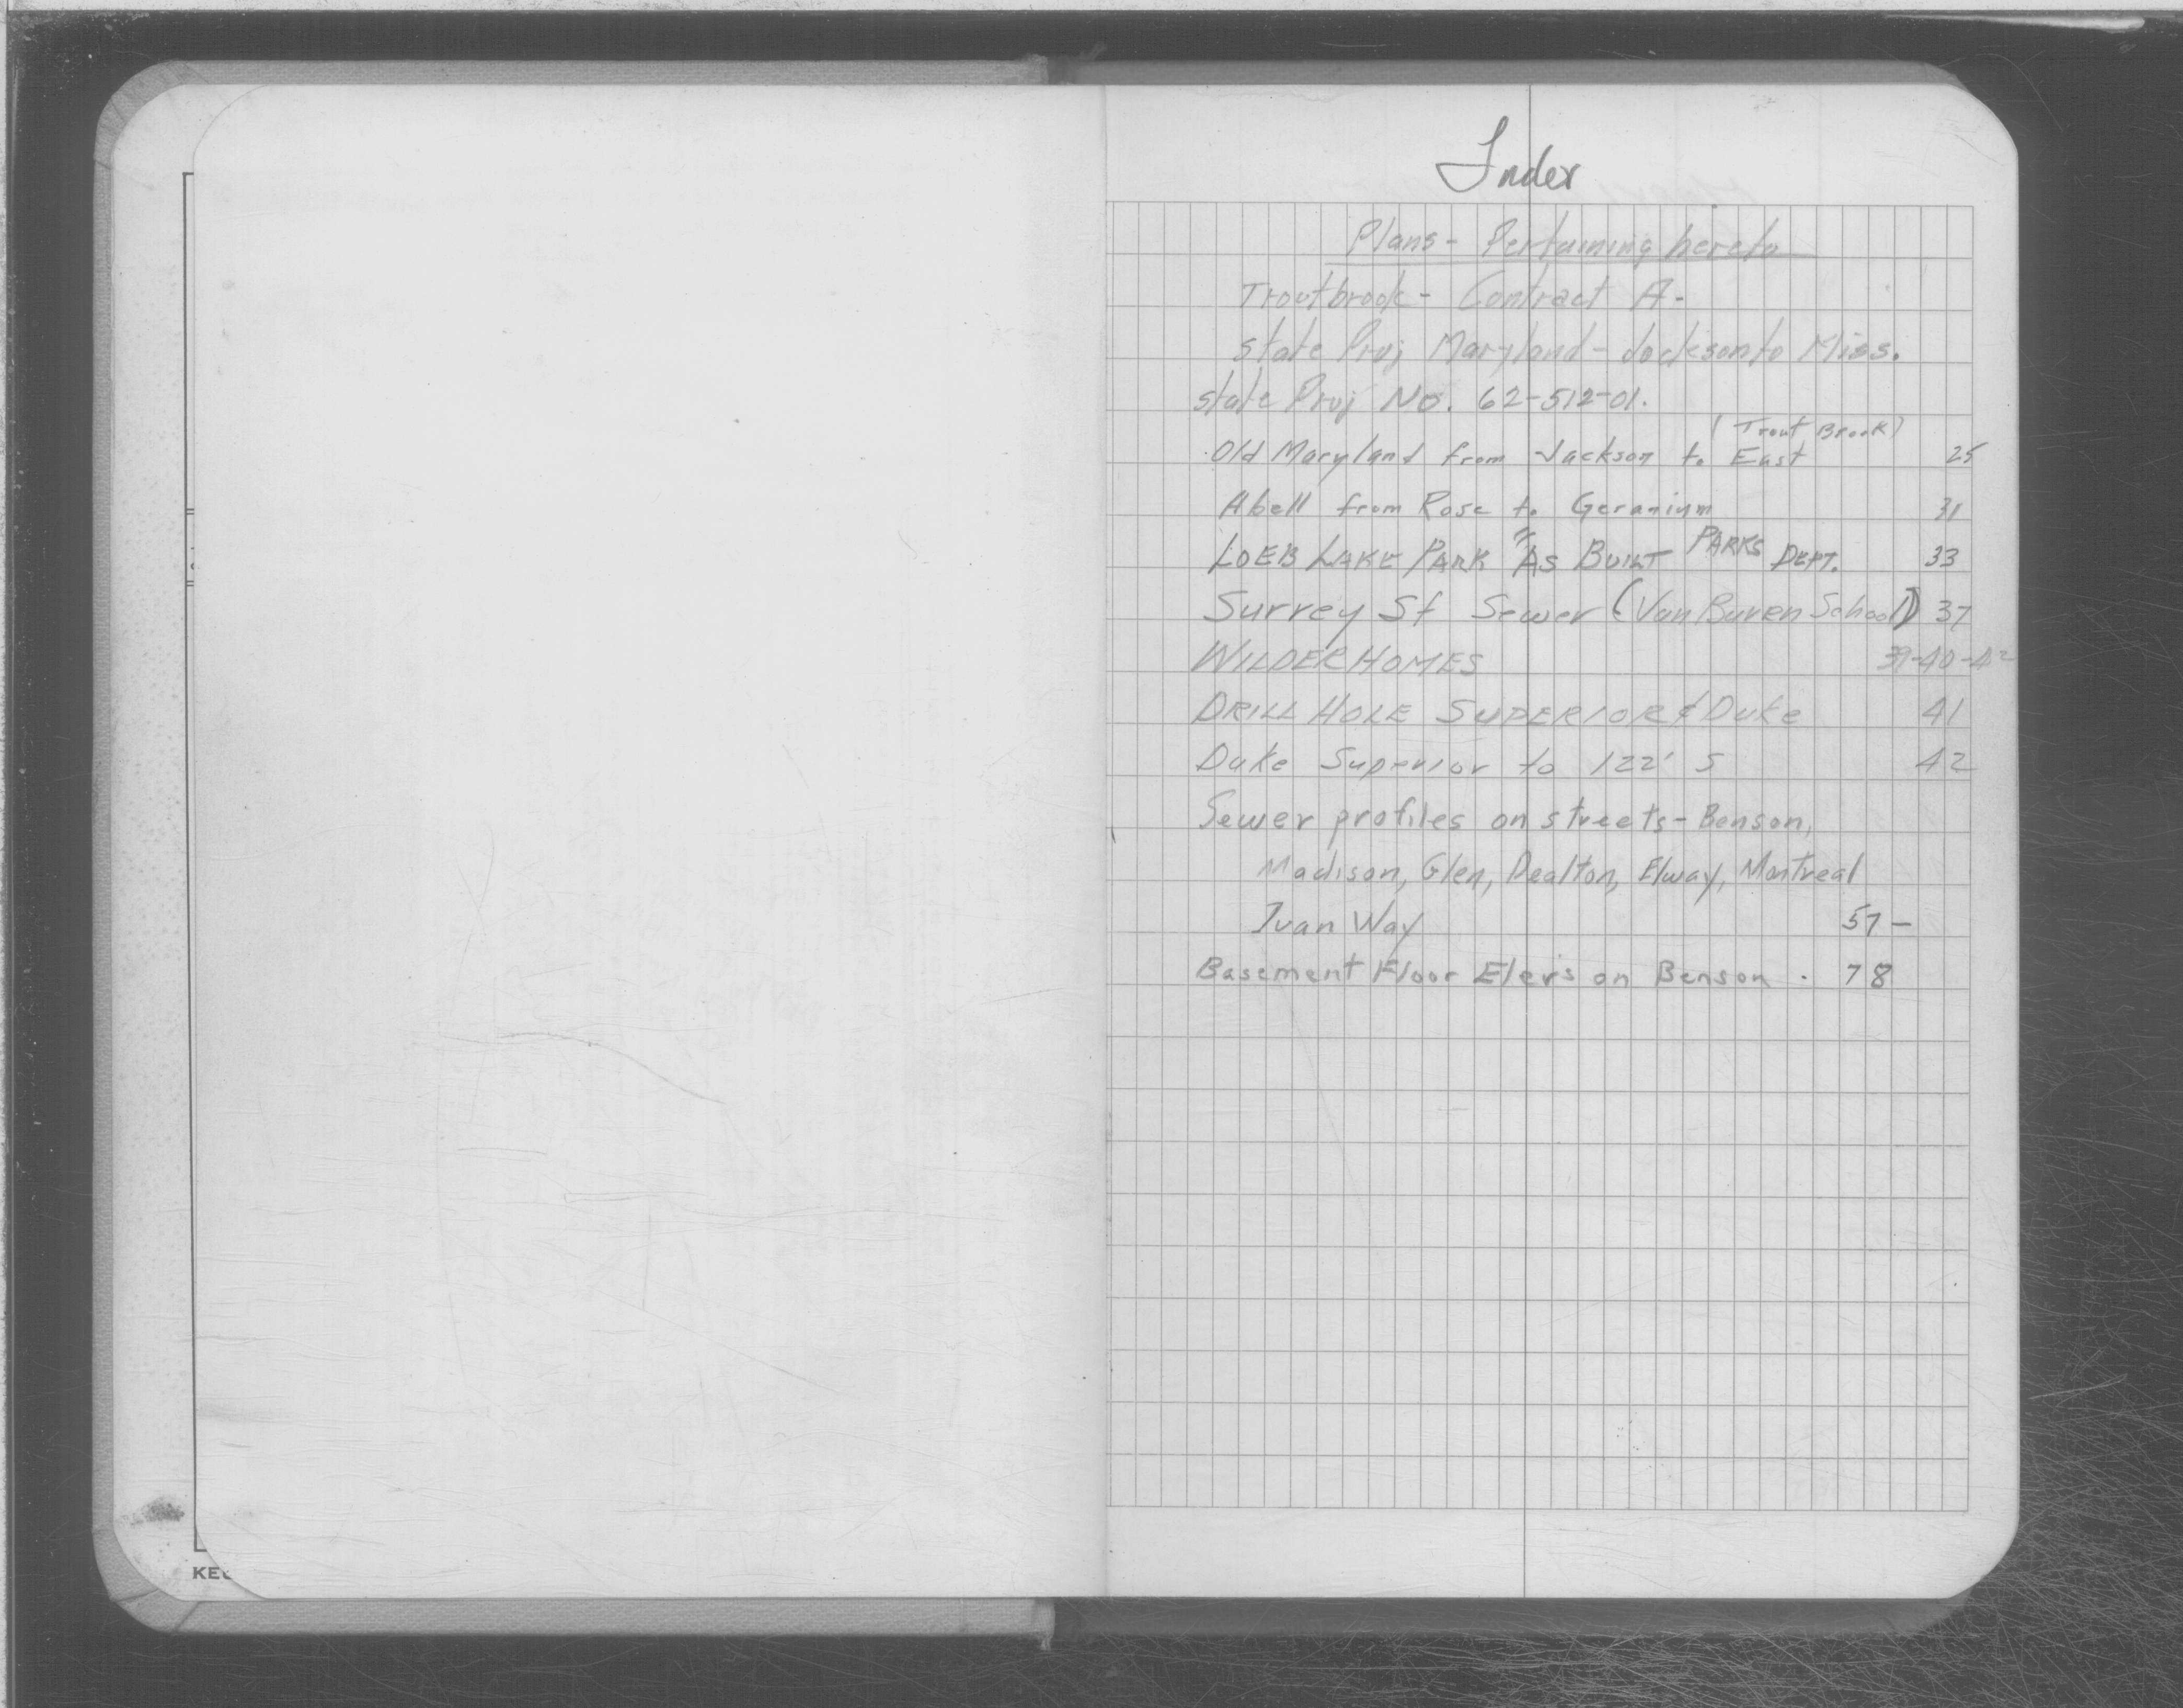 Index
Plans - Pertaining hereto
Troutbrook - Contract A -
State Proj Maryland - Jackson to Miss.
State Proj No. 62-512-01.
(Trout Brook)
Old Maryland from Jackson to East 25
Abell from Rose to Geranium 31
LOEB LAKE PARK "AS BUILT PARKS DEPT. 33
Surrey St Sewer (Van Buren School) 37
WILDER HOMES 39-40-42
DRILL HOLE SUPERIOR & Duke 41
Duke Superior to 122' S 42
Sewer profiles on streets - Benson,
Madison, Glen, Dealton, Elway, Montreal
Ivan Way 57 -
Basement Floor Elev's on Benson . 78
KEU